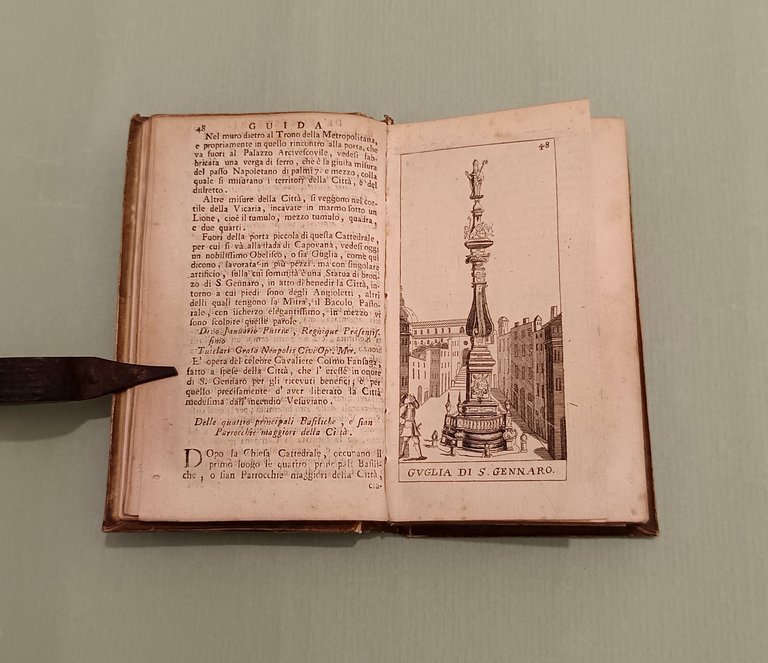 48 GUIDA
Nel muro dietro al Trono della Metropolitana,
e propriamente in quello rincontro alla porta, che
va fuori al Palazzo Arcivescovile, vedesi fab-
bricata una verga di ferro, che è la giusta misura
del passo Napoletano di palmi 7. e mezzo, colla
quale si misurano i territorj della Città, e del
distretto.
Altre misure della Città, si veggono nel cor-
tile della Vicaria, incavate in marmo sotto un
Lione, cioè il tumulo, mezzo tumulo, quadra,
e due quarti.
Fuori della porta piccola di questa Cattedrale,
per cui si và alla strada di Capovana, vedesi oggi
un nobilissimo Obelisco, o sia Guglia, come qui
dicono, lavorata in più pezzi, ma con singolare
artificio, sulla cui sommità è una Statua di bron-
zo di S Gennaro, in atto di benedir la Città, in-
torno a cui piedi sono degli Angioletti, altri
delli quali tengono la Mitra, il Bacolo Pasto-
rale, con ischerzo elegantissimo, in mezzo vi
sono scolpite queste parole.
Divo Januario Patriæ, Regnique Præsentis-
simo
Tutelari Grata Neapolis Civi Opt. Mer.
E' opera del celebre Cavaliere Cosmo Fansaga,
fatto a spese della Città, che l'eresse in onore
di S. Gennaro per gli ricevuti beneficj, e per
quello precisamente d'aver liberato la Città
medesima dall'incendio Vesuviano.
Delle quattro principali Basiliche, o sian
Parrocchie maggiori della Città.
DOpo la Chiesa Cattedrale, occupano il
primo luogo le quattro principali Basili-
che, o sian Parrocchie maggiori della Città,
48
GVGLIA DI S. GENNARO.